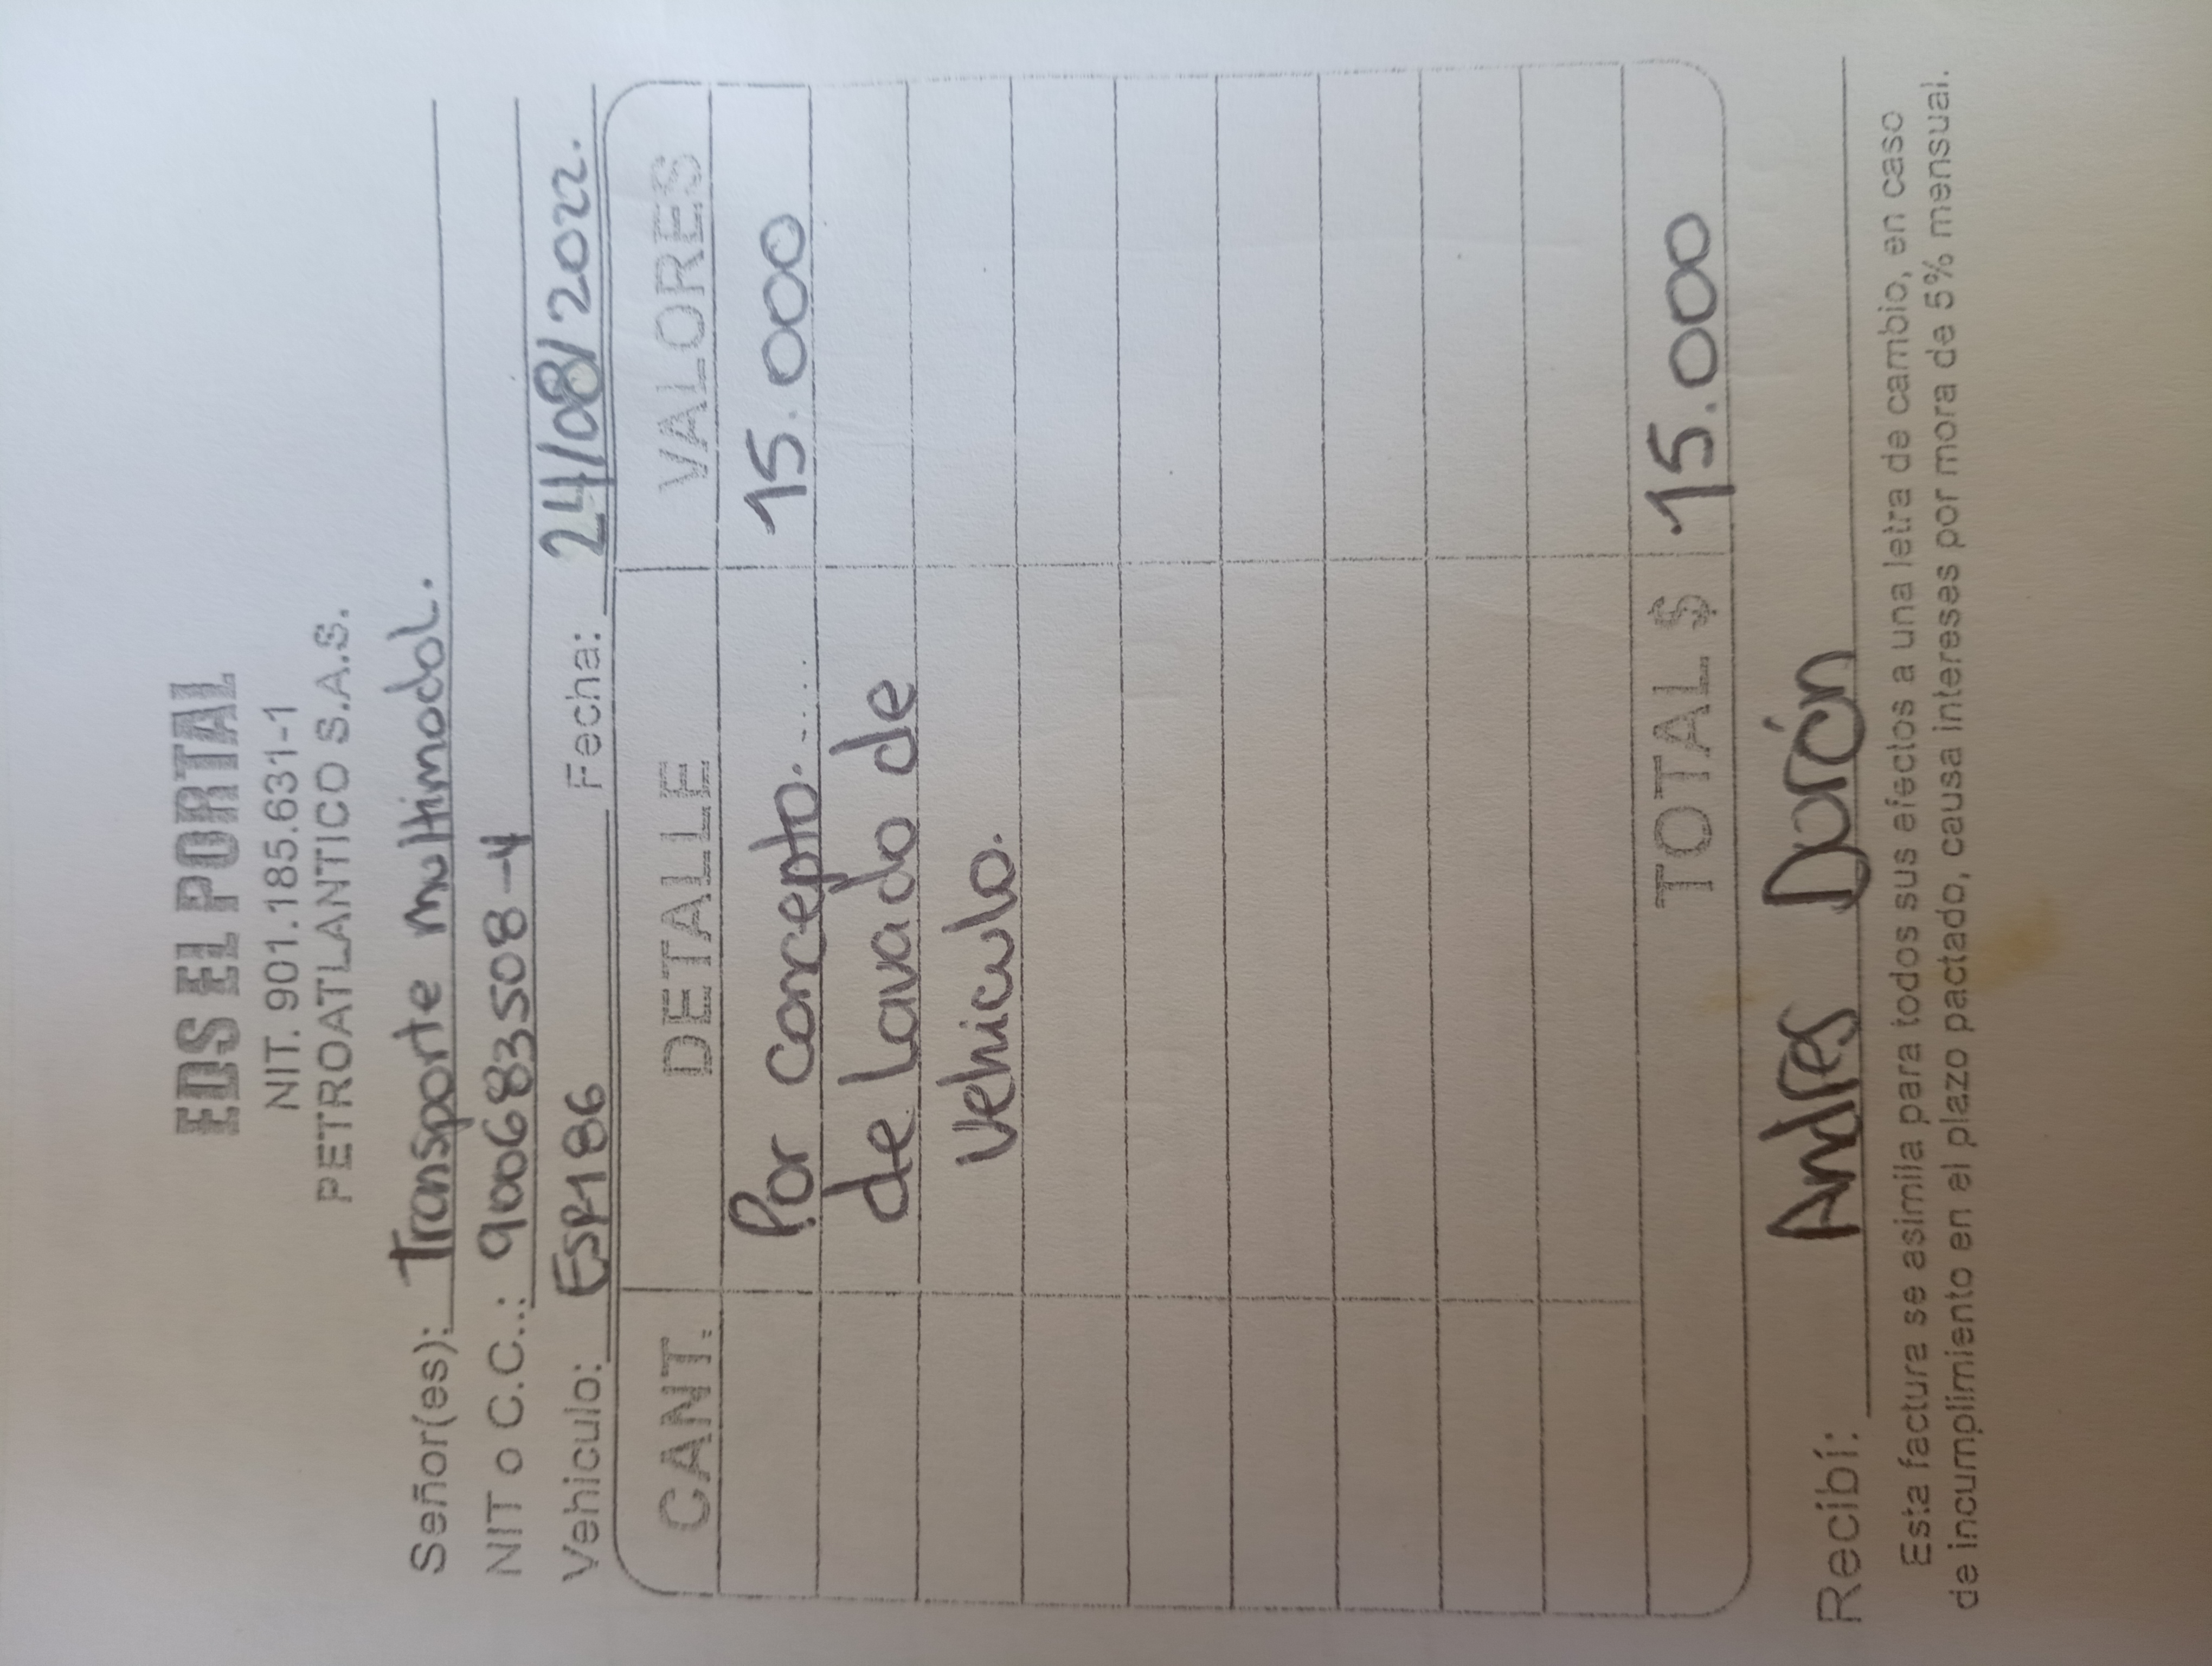 EDS EL PORTAL
NIT. 901.185.631-1
PETROATLANTICO S.A.S.
Señor(es): Transporte multimodal.
NIT o C.C.: 900683508-4
Vehiculo: ESP186 Fecha: 24/08/2022.
CANT. DETALLE VALORES
Por concepto. 15.000
de lavado de
vehiculo.
TOTAL $ 15.000
Recibí: Andres Durán
Esta factura se asimila para todos sus efectos a una letra de cambio, en caso
de incumplimiento en el plazo pactado, causa intereses por mora de 5% mensual.